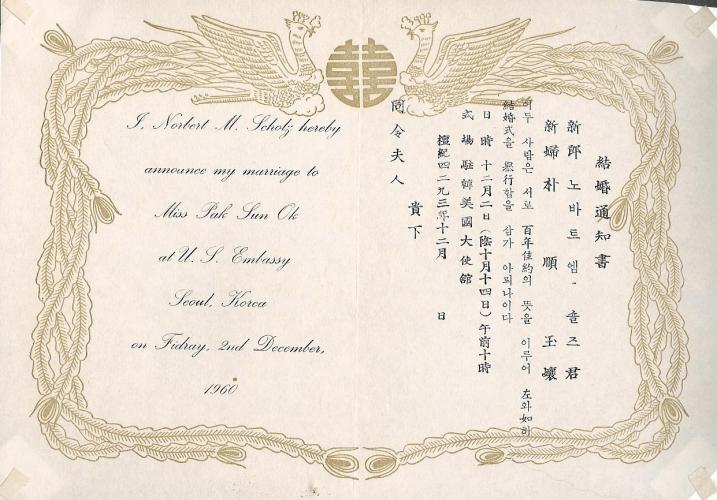 囍
I, Norbert M. Scholz hereby
announce my marriage to
Miss Pak Sun Ok
at U. S. Embassy
Seoul, Korea
on Fidray, 2nd December,
1960
結婚通知書
新郎 노바트 엠. 숄즈 君
新婦 朴 順 玉 孃
이두 사람은 서로 百年佳約의 뜻을 이루어 左와如히
結婚式을 擧行함을 삼가 아뢰나이다
日 時 十二月二日(陰十月十四日)午前十時
式 場 駐韓美國大使館
檀紀四二九三年十二月 日
貴下
同令夫人